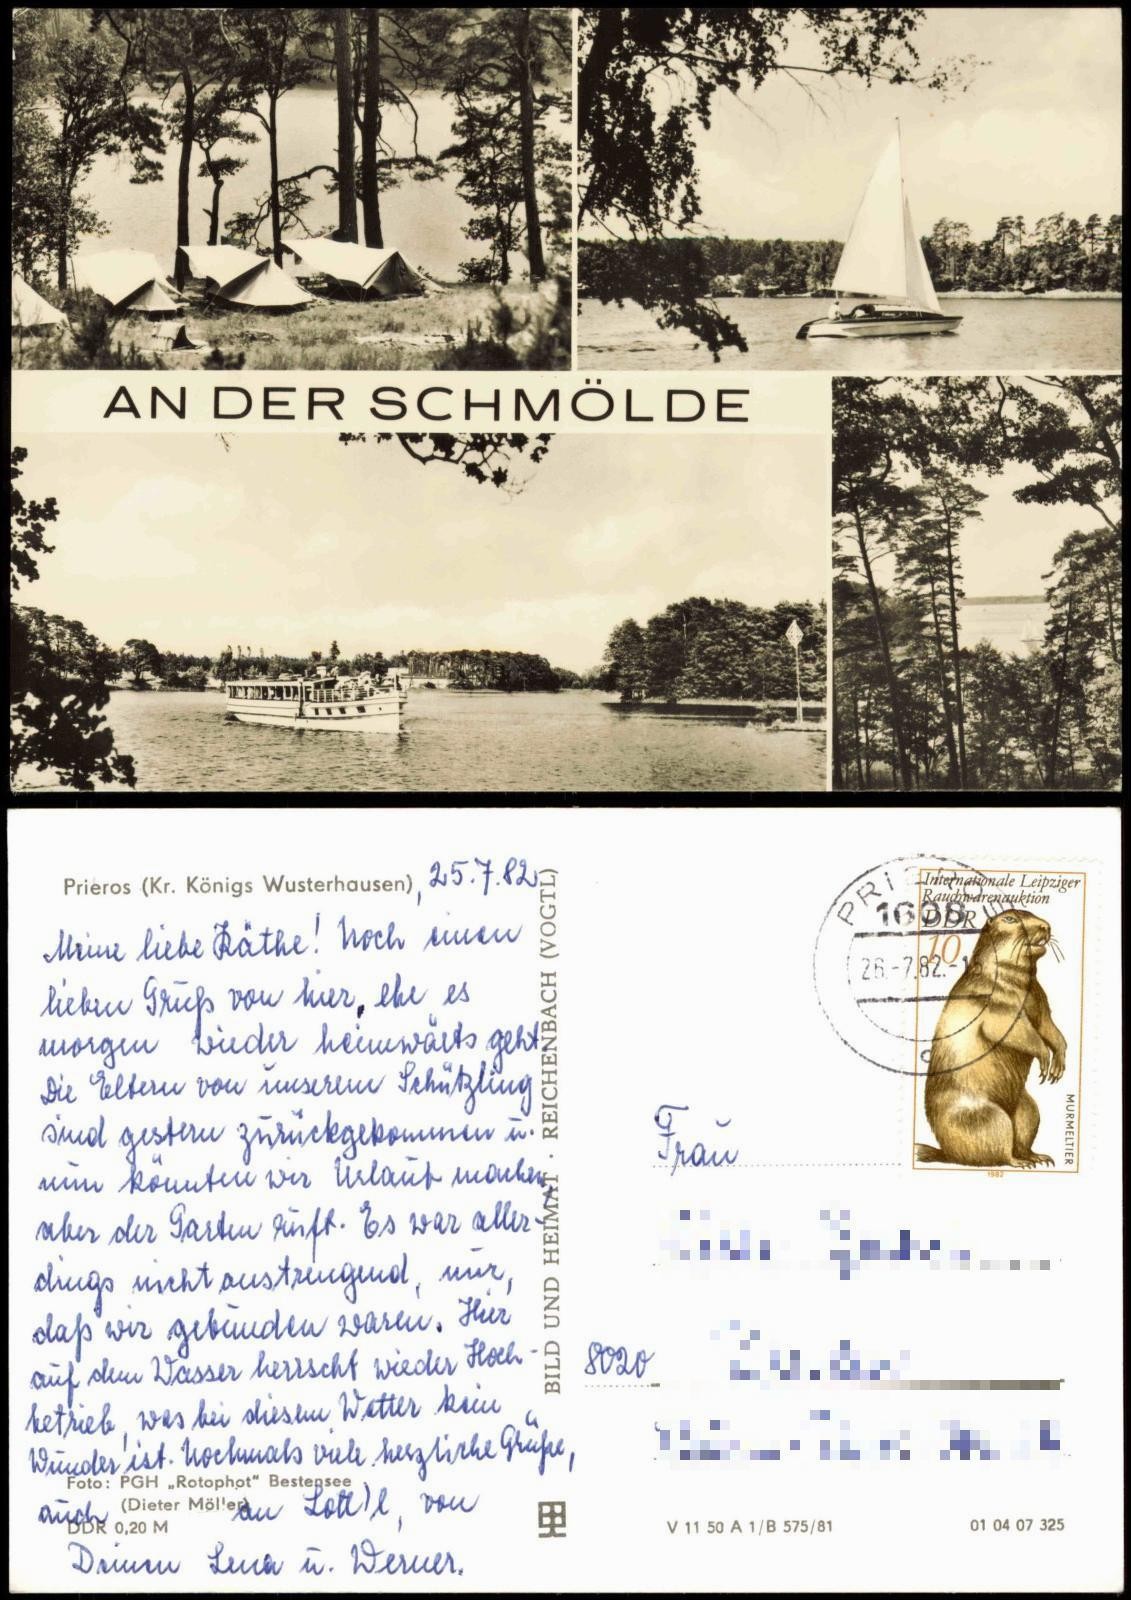 AN DER SCHMÖLDE
Prieros (Kr. Königs Wusterhausen), 25.7.82
Meine liebe Käthe! Noch einen
lieben Gruß von hier, ehe es
morgen wieder heimwärts geht.
Die Eltern von unserem Schützling
sind gestern zurückgekommen u.
nun könnten wir Urlaub machen,
aber der Garten ruft. Es war aller-
dings nicht anstrengend, nur,
daß wir gebunden waren. Hier
auf dem Wasser herrscht wieder Hoch-
betrieb, was bei diesem Wetter kein
Wunder ist. Nochmals viele herzliche Grüße,
auch an Lott'l, von
Deinen Lena u. Werner.
Foto: PGH „Rotophot" Bestensee
(Dieter Möller)
DDR 0,20 M
BILD UND HEIMAT · REICHENBACH (VOGTL)
PRIEROS
1608
26.-7.82.-
c
Internationale Leipziger
Rauchwarenauktion
DDR
10
MURMELTIER
1982
Frau
8020
V 11 50 A 1/B 575/81
01 04 07 325